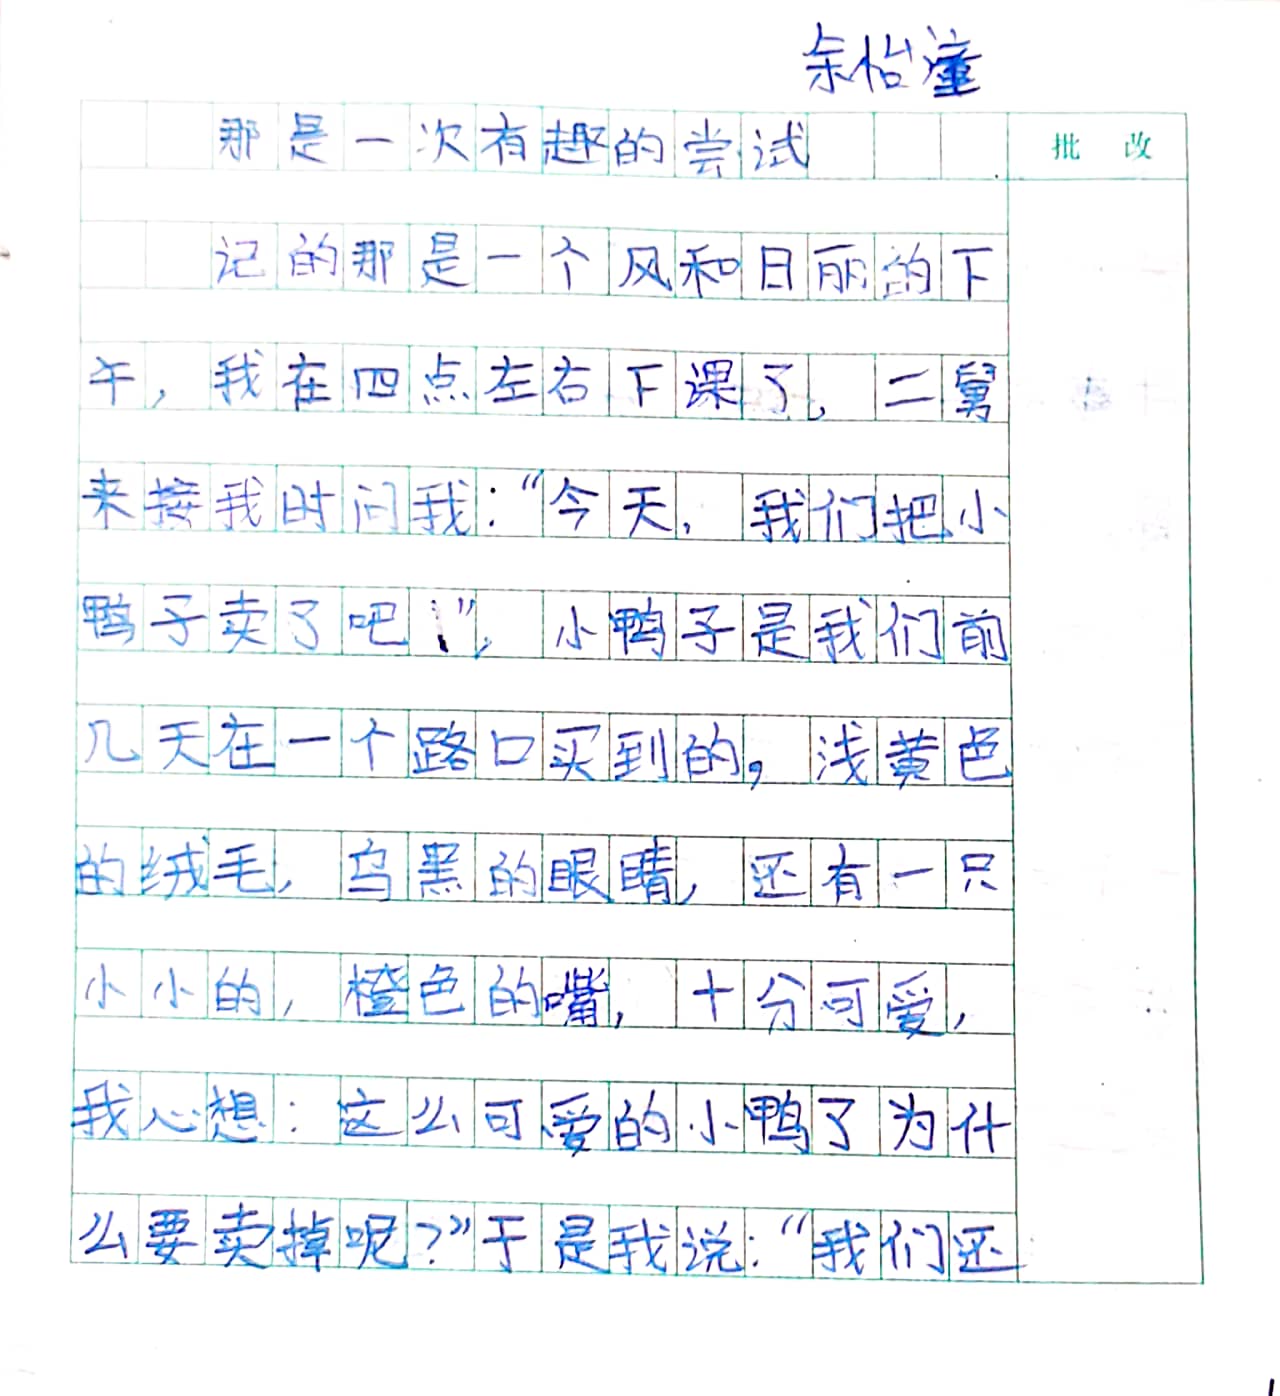 余怡潼
那是一次有趣的尝试
批 改
记的那是一个风和日丽的下
午，我在四点左右下课了，二舅
来接我时问我：“今天，我们把小
鸭子卖了吧！”，小鸭子是我们前
几天在一个路口买到的，浅黄色
的绒毛，乌黑的眼睛，还有一只
小小的，橙色的嘴，十分可爱，
我心想：这么可爱的小鸭了为什
么要卖掉呢？”于是我说：“我们还